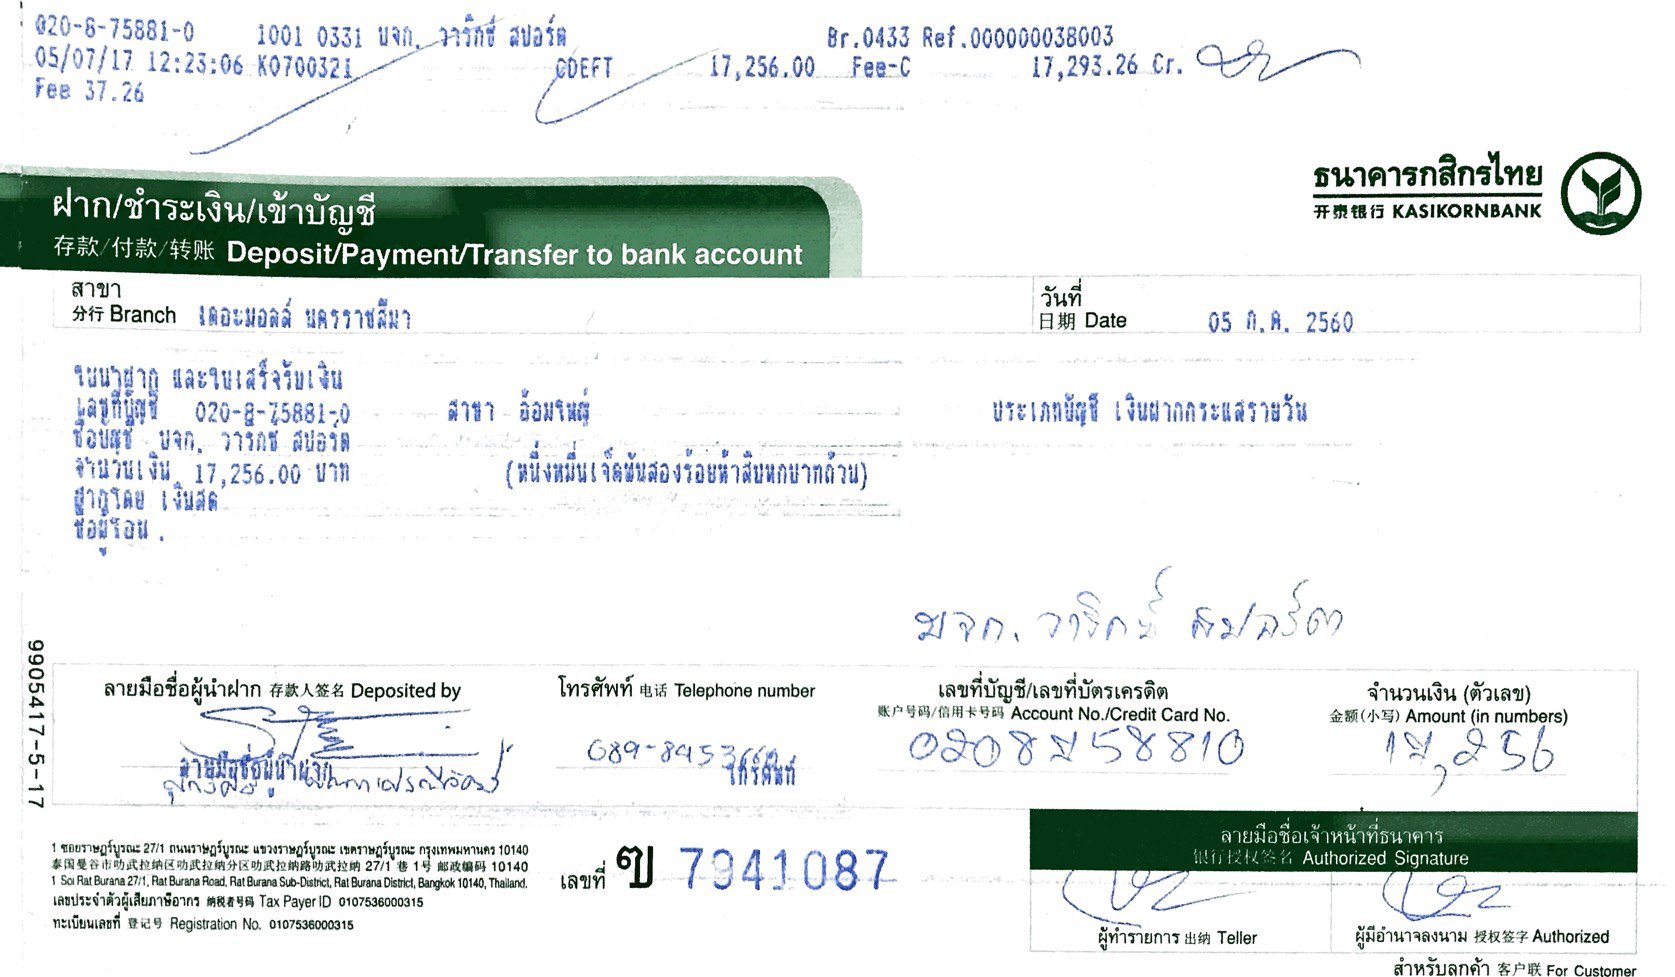 020-8-75881-0 1001 0331 บจก. วาริกซ์ สปอร์ต Br.0433 Ref.000000038003
05/07/17 12:23:06 K0700321 CDEFT 17,256.00 Fee-C 17,293.26 Cr.
Fee 37.26
ธนาคารกสิกรไทย
开泰银行 KASIKORNBANK
ฝาก/ชำระเงิน/เข้าบัญชี
存款/付款/转账 Deposit/Payment/Transfer to bank account
สาขา
分行 Branch เดอะมอลล์ นครราชสีมา
วันที่
日期 Date 05 ก.ค. 2560
ใบนำฝาก และใบเสร็จรับเงิน
เลขที่บัญชี 020-8-75881-0 สาขา อ้อมใหญ่ ประเภทบัญชี เงินฝากกระแสรายวัน
ชื่อบัญชี บจก. วาริกซ์ สปอร์ต
จำนวนเงิน 17,256.00 บาท (หนึ่งหมื่นเจ็ดพันสองร้อยห้าสิบหกบาทถ้วน)
ฝากโดย เงินสด
ชื่อผู้โอน .
บจก. วาริกซ์ สปอร์ต
9905417-5-17
ลายมือชื่อผู้นำฝาก 存款人签名 Deposited by
โทรศัพท์ 电话 Telephone number
เลขที่บัญชี/เลขที่บัตรเครดิต
账户号码/信用卡号码 Account No./Credit Card No.
จำนวนเงิน (ตัวเลข)
金额(小写) Amount (in numbers)
ลายมือชื่อผู้นำฝาก
089-8453
โทรศัพท์
0208758810
17,256
1 ซอยราษฎร์บูรณะ 27/1 ถนนราษฎร์บูรณะ แขวงราษฎร์บูรณะ เขตราษฎร์บูรณะ กรุงเทพมหานคร 10140
泰国曼谷市叻武拉纳区叻武拉纳分区叻武拉纳路叻武拉纳 27/1 巷 1号 邮政编码 10140
1 Soi Rat Burana 27/1, Rat Burana Road, Rat Burana Sub-District, Rat Burana District, Bangkok 10140, Thailand.
เลขประจำตัวผู้เสียภาษีอากร 纳税者号码 Tax Payer ID 0107536000315
ทะเบียนเลขที่ 登记号 Registration No. 0107536000315
เลขที่ ฃ 7941087
ลายมือชื่อเจ้าหน้าที่ธนาคาร
银行授权签名 Authorized Signature
ผู้ทำรายการ 出纳 Teller
ผู้มีอำนาจลงนาม 授权签字 Authorized
สำหรับลูกค้า 客户联 For Customer